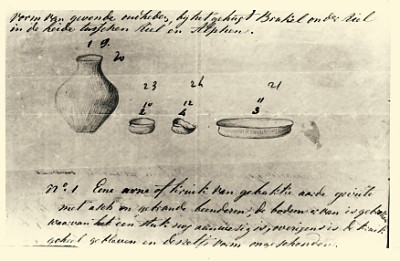 Vorm van gevonde oudheden, by het gehugt Brakel onder tiel
in de heide tusschen tiel en Alphen.
1 9.
20
23 24 21
10 12 11
2 4 3
No. 1 Eene urne of kruik van gebakke aarde gevult
met asch en gebrande beenderen, de bodem van is gebroken
waarvan het een stuk nog aanwezig is, overigens is de kruik
geheel gebleven en deszelfs vorm ongeschonden.